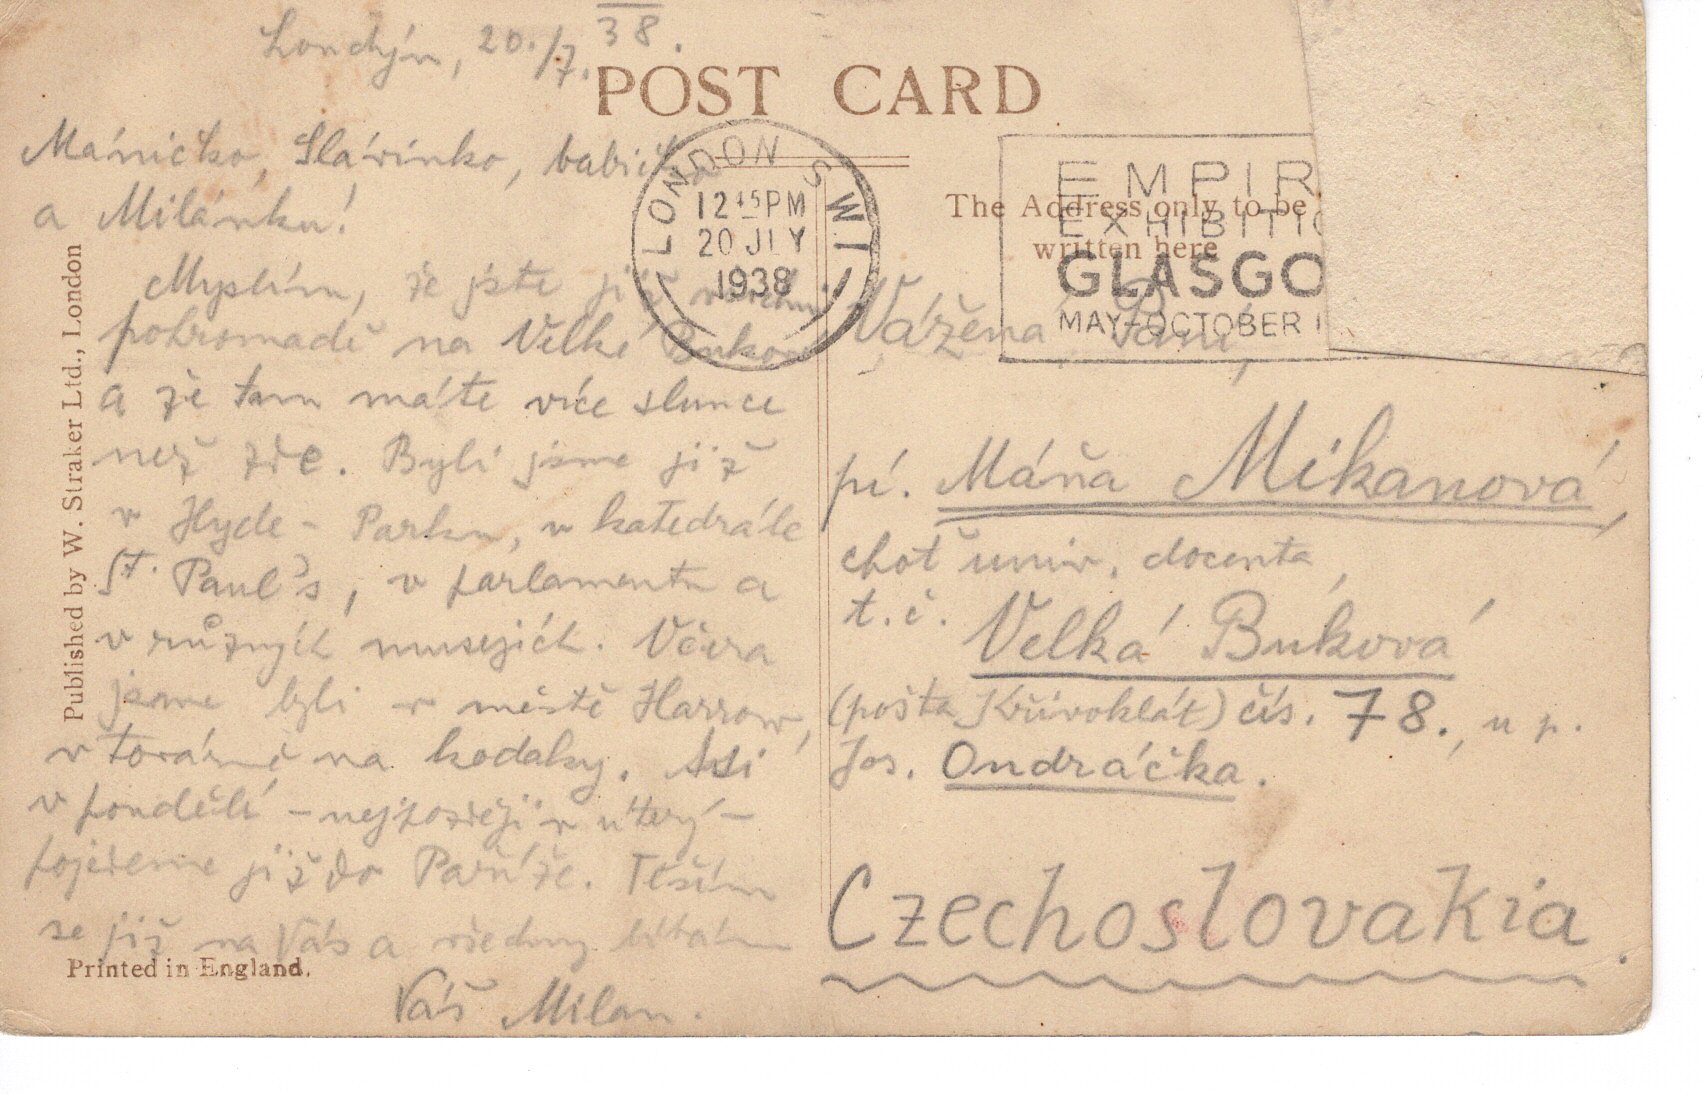 Londýn, 20./7. 38.
POST CARD
Máničko, Slávinko, babičko
a Milánku!
Myslím, že jste již všichni
pohromadě na Velké Bukové
a že tam máte více slunce
než zde. Byli jsme již
v Hyde-Parku, v katedrále
St. Paul's, v parlamentu a
v různých musejích. Včera
jsme byli v městě Harrow,
v továrně na kodaky. Asi
v pondělí – nejpozději v úterý –
pojedeme již do Paříže. Těším
se již na Vás a všechny líbám
Váš Milan.
Published by W. Straker Ltd., London
Printed in England.
LONDON S.W.1
12 45 PM
20 JLY
1938
EMPIR
EXHIBITIO
GLASGO
MAY-OCTOBER
The Address only to be
written here
Vážená Paní,
pí. Máňa Mikanová,
choť univ. docenta,
t.č. Velká Buková
(pošta Křivoklát) čís. 78., u p.
Jos. Ondráčka.
Czechoslovakia.